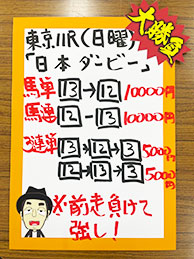 大勝負
東京11R(日曜)
「日本ダービー」
馬単 13→12 10000円
馬連 12-13 10000円
3連単 13→12→3 5000円
12→13→3 5000円
※前走負けて
強し!